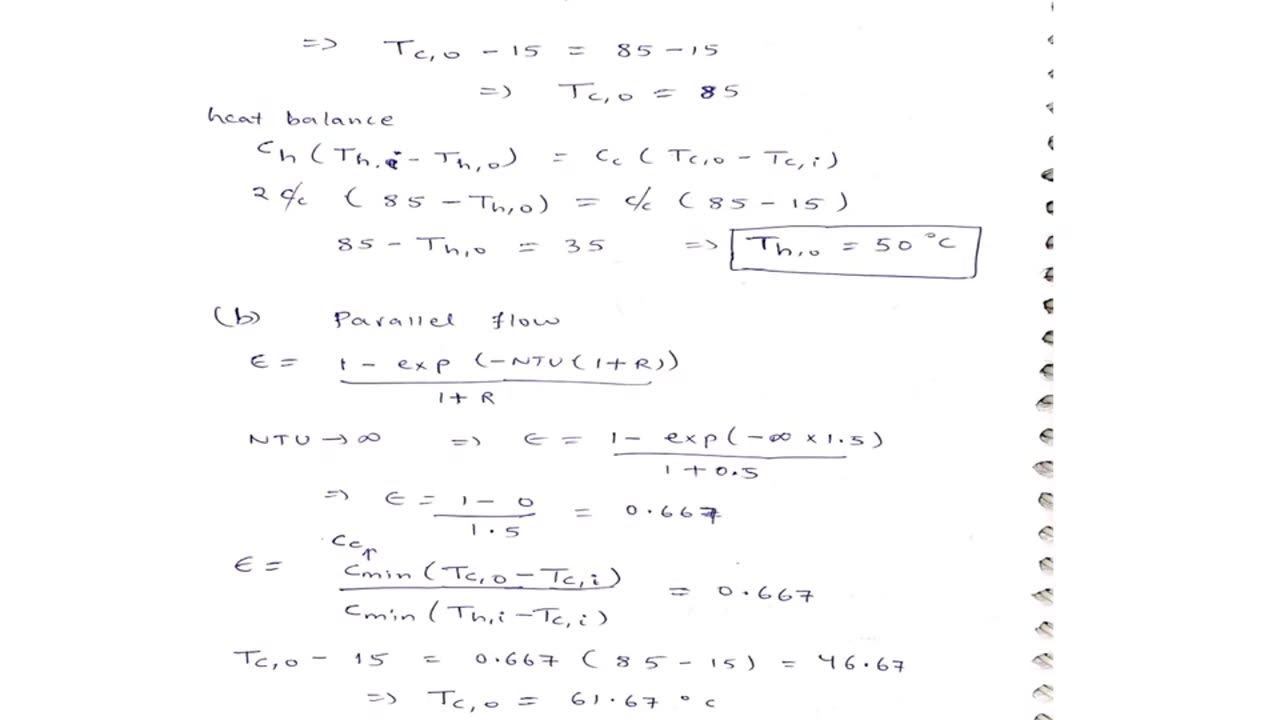 => Tc,o - 15 = 85 - 15
=> Tc,o = 85
heat balance
Ch (Th,i - Th,o) = Cc (Tc,o - Tc,i)
2 Cc (85 - Th,o) = Cc (85 - 15)
85 - Th,o = 35 => Th,o = 50 °C
(b) Parallel flow
ε = 1 - exp (-NTU (1+R))
1 + R
NTU → ∞ => ε = 1 - exp (-∞ × 1.5)
1 + 0.5
=> ε = 1 - 0 = 0.667
1.5
Cc
ε = Cmin (Tc,o - Tc,i) = 0.667
Cmin (Th,i - Tc,i)
Tc,o - 15 = 0.667 (85 - 15) = 46.67
=> Tc,o = 61.67 °C